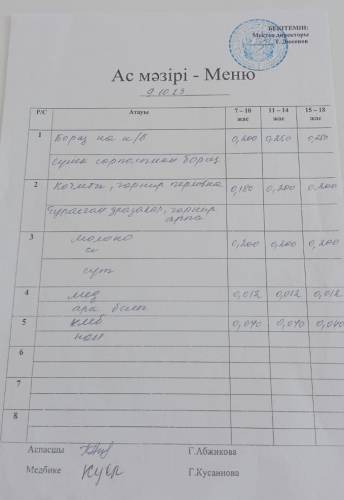 БЕКІТЕМІН:
Мектеп директоры
Т. Дюсенов
Ас мәзірі - Меню
9.10.23
Р/С Атауы 7 – 10 жас 11 – 14 жас 15 – 18 жас
1 Борщ на к/б 0,200 0,250 0,250
борщ
2 Котлеты, гарнир перловка 0,180 0,200 0,200
гарнир
арпа
3 молоко 0,200 0,200 0,200
сүт
4 мед 0,012 0,012 0,012
ара балы
5 хлеб 0,040 0,040 0,040
нан
6
7
8
Аспасшы Г.Абжикова
Медбике Г.Кусаинова